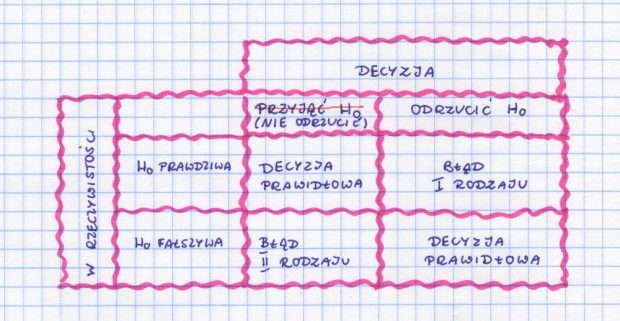 DECYZJA
PRZYJĄĆ H₀
(NIE ODRZUCIĆ)
ODRZUCIĆ H₀
W RZECZYWISTOŚCI
H₀ PRAWDZIWA
DECYZJA
PRAWIDŁOWA
BŁĄD
I RODZAJU
H₀ FAŁSZYWA
BŁĄD
II RODZAJU
DECYZJA
PRAWIDŁOWA